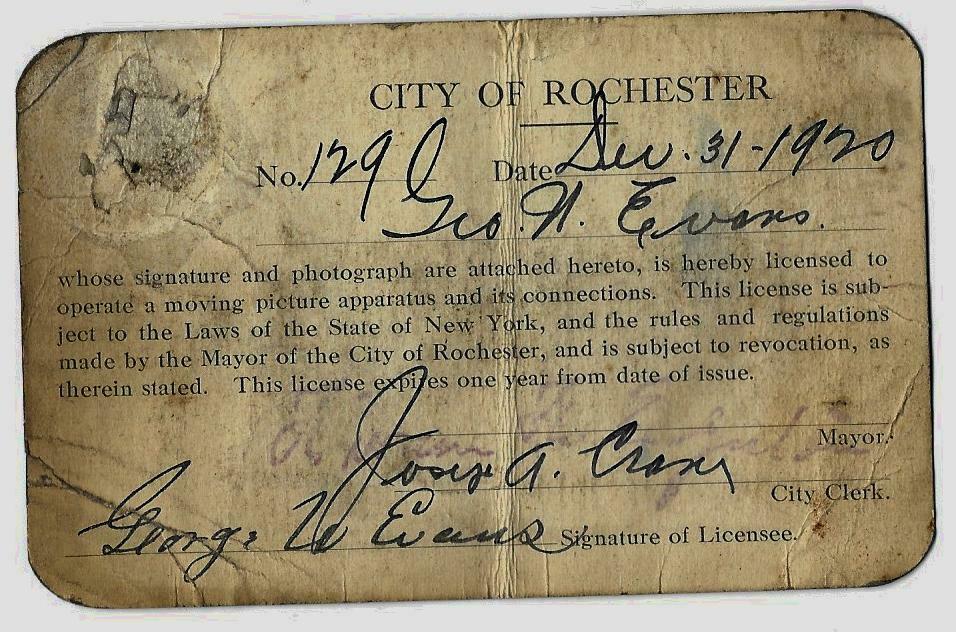 CITY OF ROCHESTER
No. 129 Date Dec. 31-1920
Geo. W. Evans.
whose signature and photograph are attached hereto, is hereby licensed to
operate a moving picture apparatus and its connections. This license is sub-
ject to the Laws of the State of New York, and the rules and regulations
made by the Mayor of the City of Rochester, and is subject to revocation, as
therein stated. This license expires one year from date of issue.
Mayor.
Joseph A. Crane
City Clerk.
George W Evans Signature of Licensee.